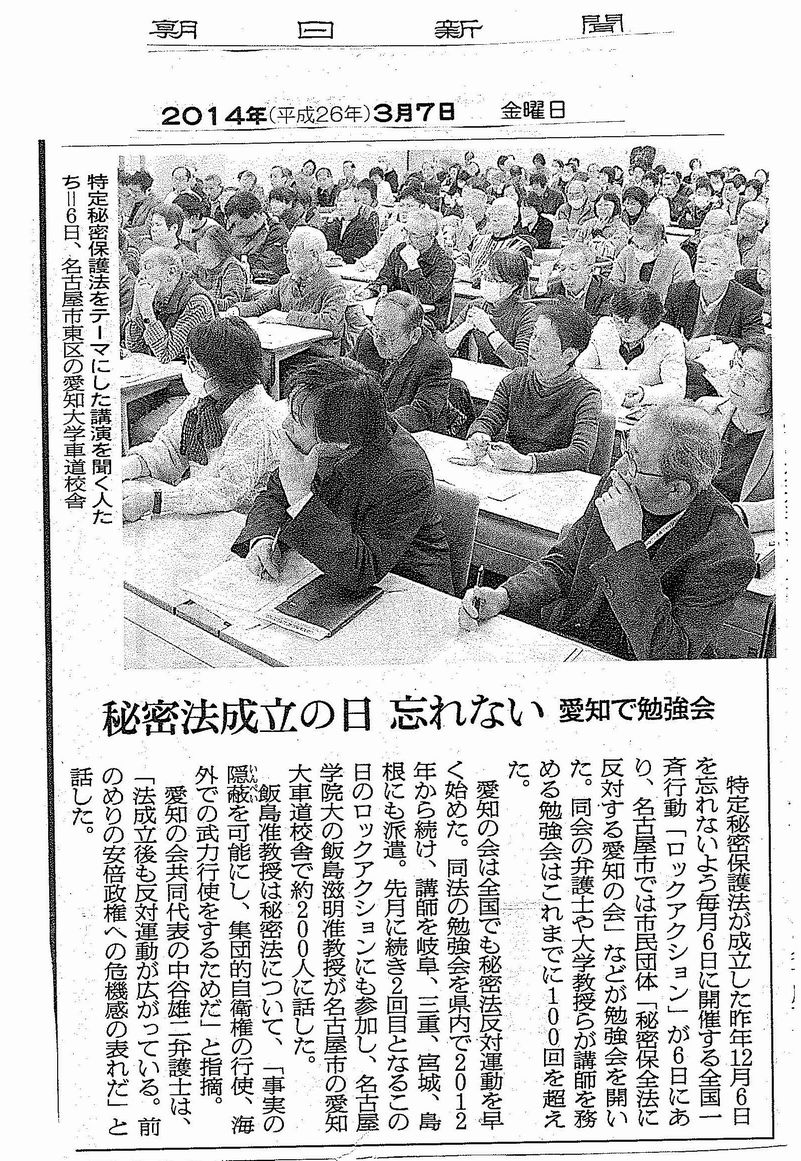 朝日新聞
2014年(平成26年)3月7日 金曜日
特定秘密保護法をテーマにした講演を聞く人た
ち=6日、名古屋市東区の愛知大学車道校舎
秘密法成立の日 忘れない 愛知で勉強会
特定秘密保護法が成立した昨年12月6日
を忘れないよう毎月6日に開催する全国一
斉行動「ロックアクション」が6日にあ
り、名古屋市では市民団体「秘密保全法に
反対する愛知の会」などが勉強会を開い
た。同会の弁護士や大学教授らが講師を務
める勉強会はこれまでに100回を超え
た。
愛知の会は全国でも秘密法反対運動を早
く始めた。同法の勉強会を県内で2012
年から続け、講師を岐阜、三重、宮城、島
根にも派遣。先月に続き2回目となるこの
日のロックアクションにも参加し、名古屋
学院大の飯島滋明准教授が名古屋市の愛知
大車道校舎で約200人に話した。
飯島准教授は秘密法について、「事実の
隠蔽いんぺいを可能にし、集団的自衛権の行使、海
外での武力行使をするためだ」と指摘。
愛知の会共同代表の中谷雄二弁護士は、
「法成立後も反対運動が広がっている。前
のめりの安倍政権への危機感の表れだ」と
話した。